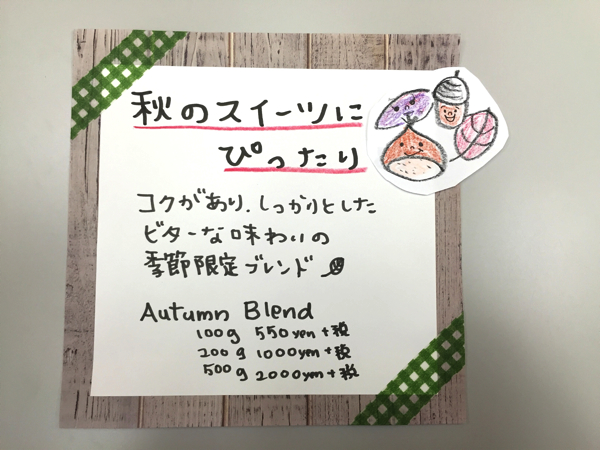 秋のスイーツに
ぴったり
コクがあり、しっかりとした
ビターな味わいの
季節限定ブレンド
Autumn Blend
100g 550yen+税
200g 1000yen+税
500g 2000yen+税